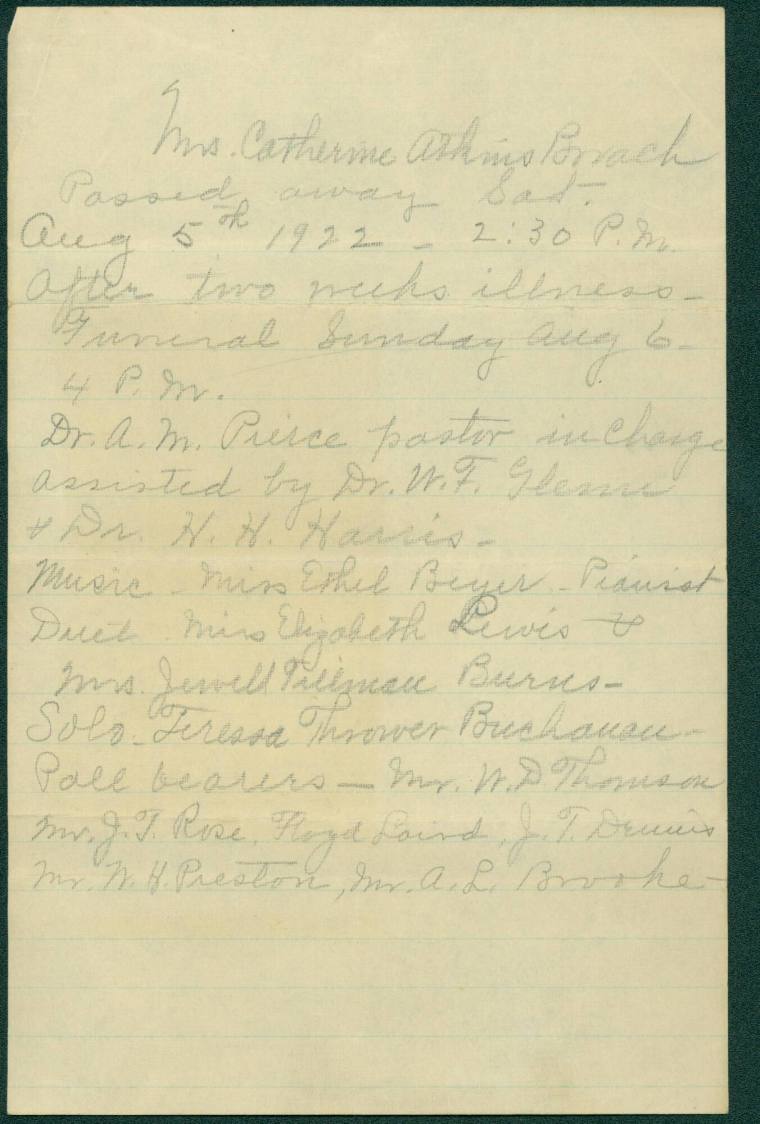 Mrs. Catherine Atkins Broach
Passed away Sat.
Aug 5th 1922 - 2:30 P.M.
After two weeks illness -
Funeral Sunday Aug 6 -
4 P.M.
Dr. A. M. Pierce pastor in charge
assisted by Dr. W. F. Glenn
& Dr. H. H. Harris -
Music - Miss Ethel Beyer - Pianist
Duet Miss Elizabeth Lewis &
Mrs. Jewell Tillman Burns -
Solo - Teressa Thrower Buchanan -
Pall bearers — Mr. W. D Thomson
Mr. J. T. Rose, Floyd Laird, J. T.
Mr. W. H. Preston, Mr. A. L. Brooke -